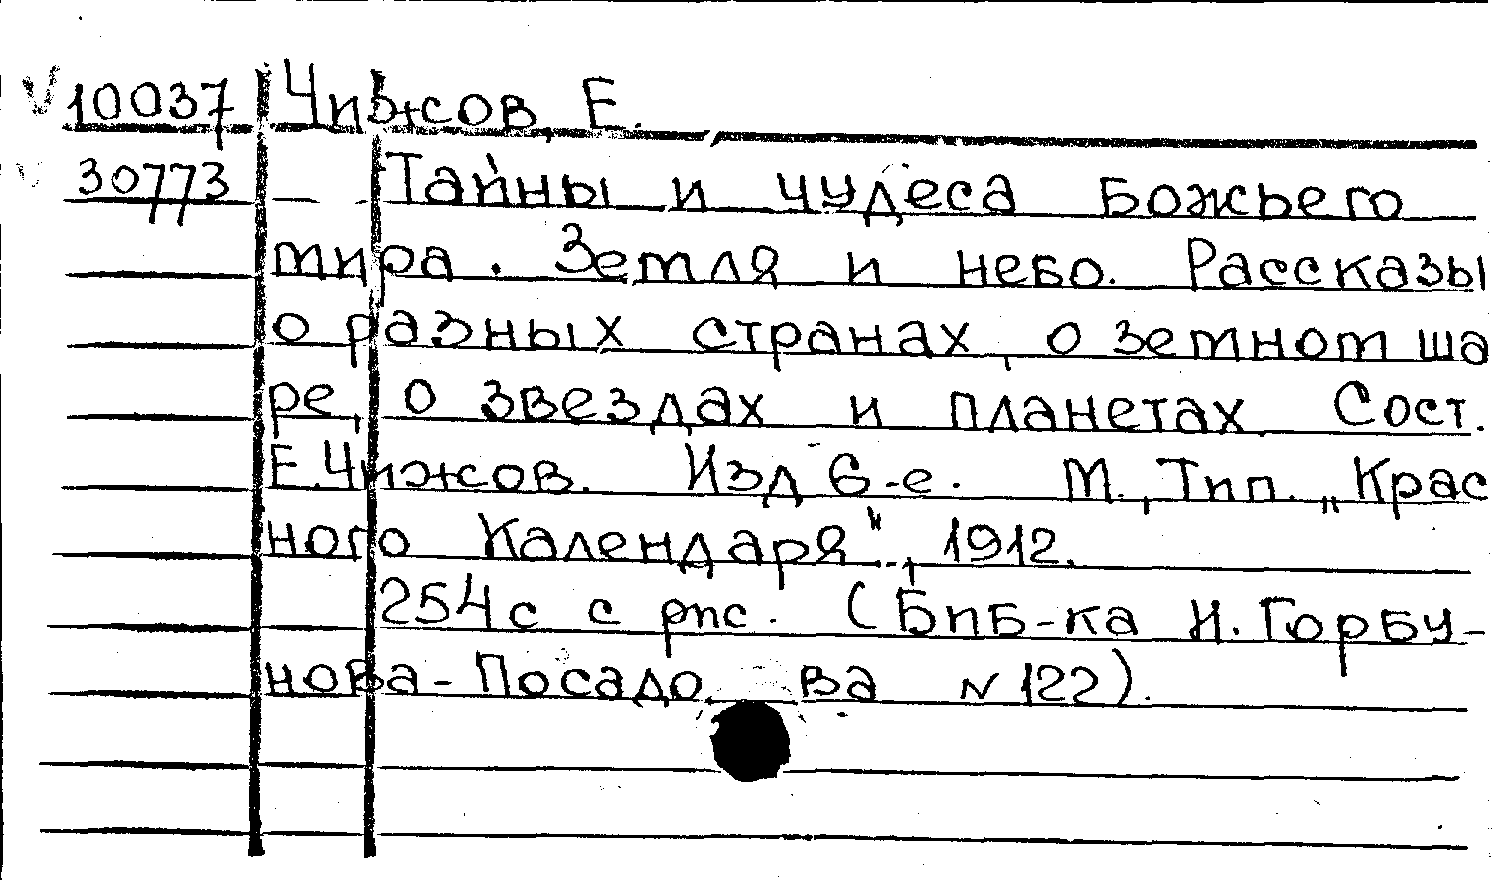 V 10037 Чижов, Е.
V 30773 Тайны и чудеса Божьего
мира. Земля и небо. Рассказы
о разных странах, о земном ша
ре, о звездах и планетах. Сост.
Е.Чижов. Изд 6-е. М., Тип. „Крас
ного Календаря", 1912.
254с с рис. (Биб-ка И. Горбу-
нова-Посадо ва N 122).